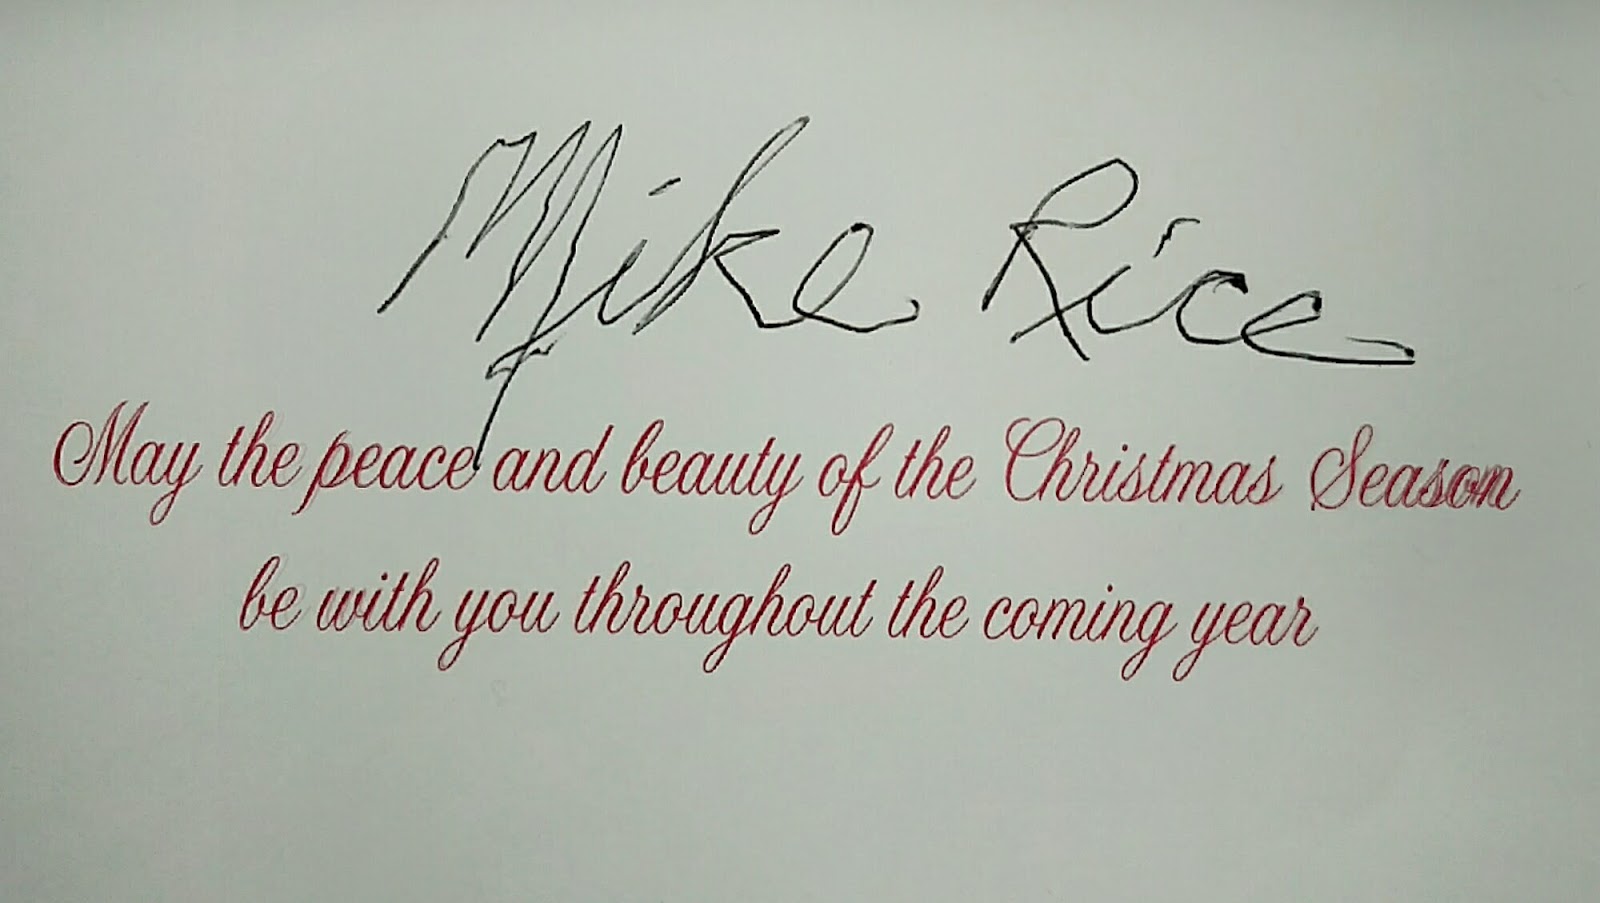 Mike Rice
May the peace and beauty of the Christmas Season
be with you throughout the coming year